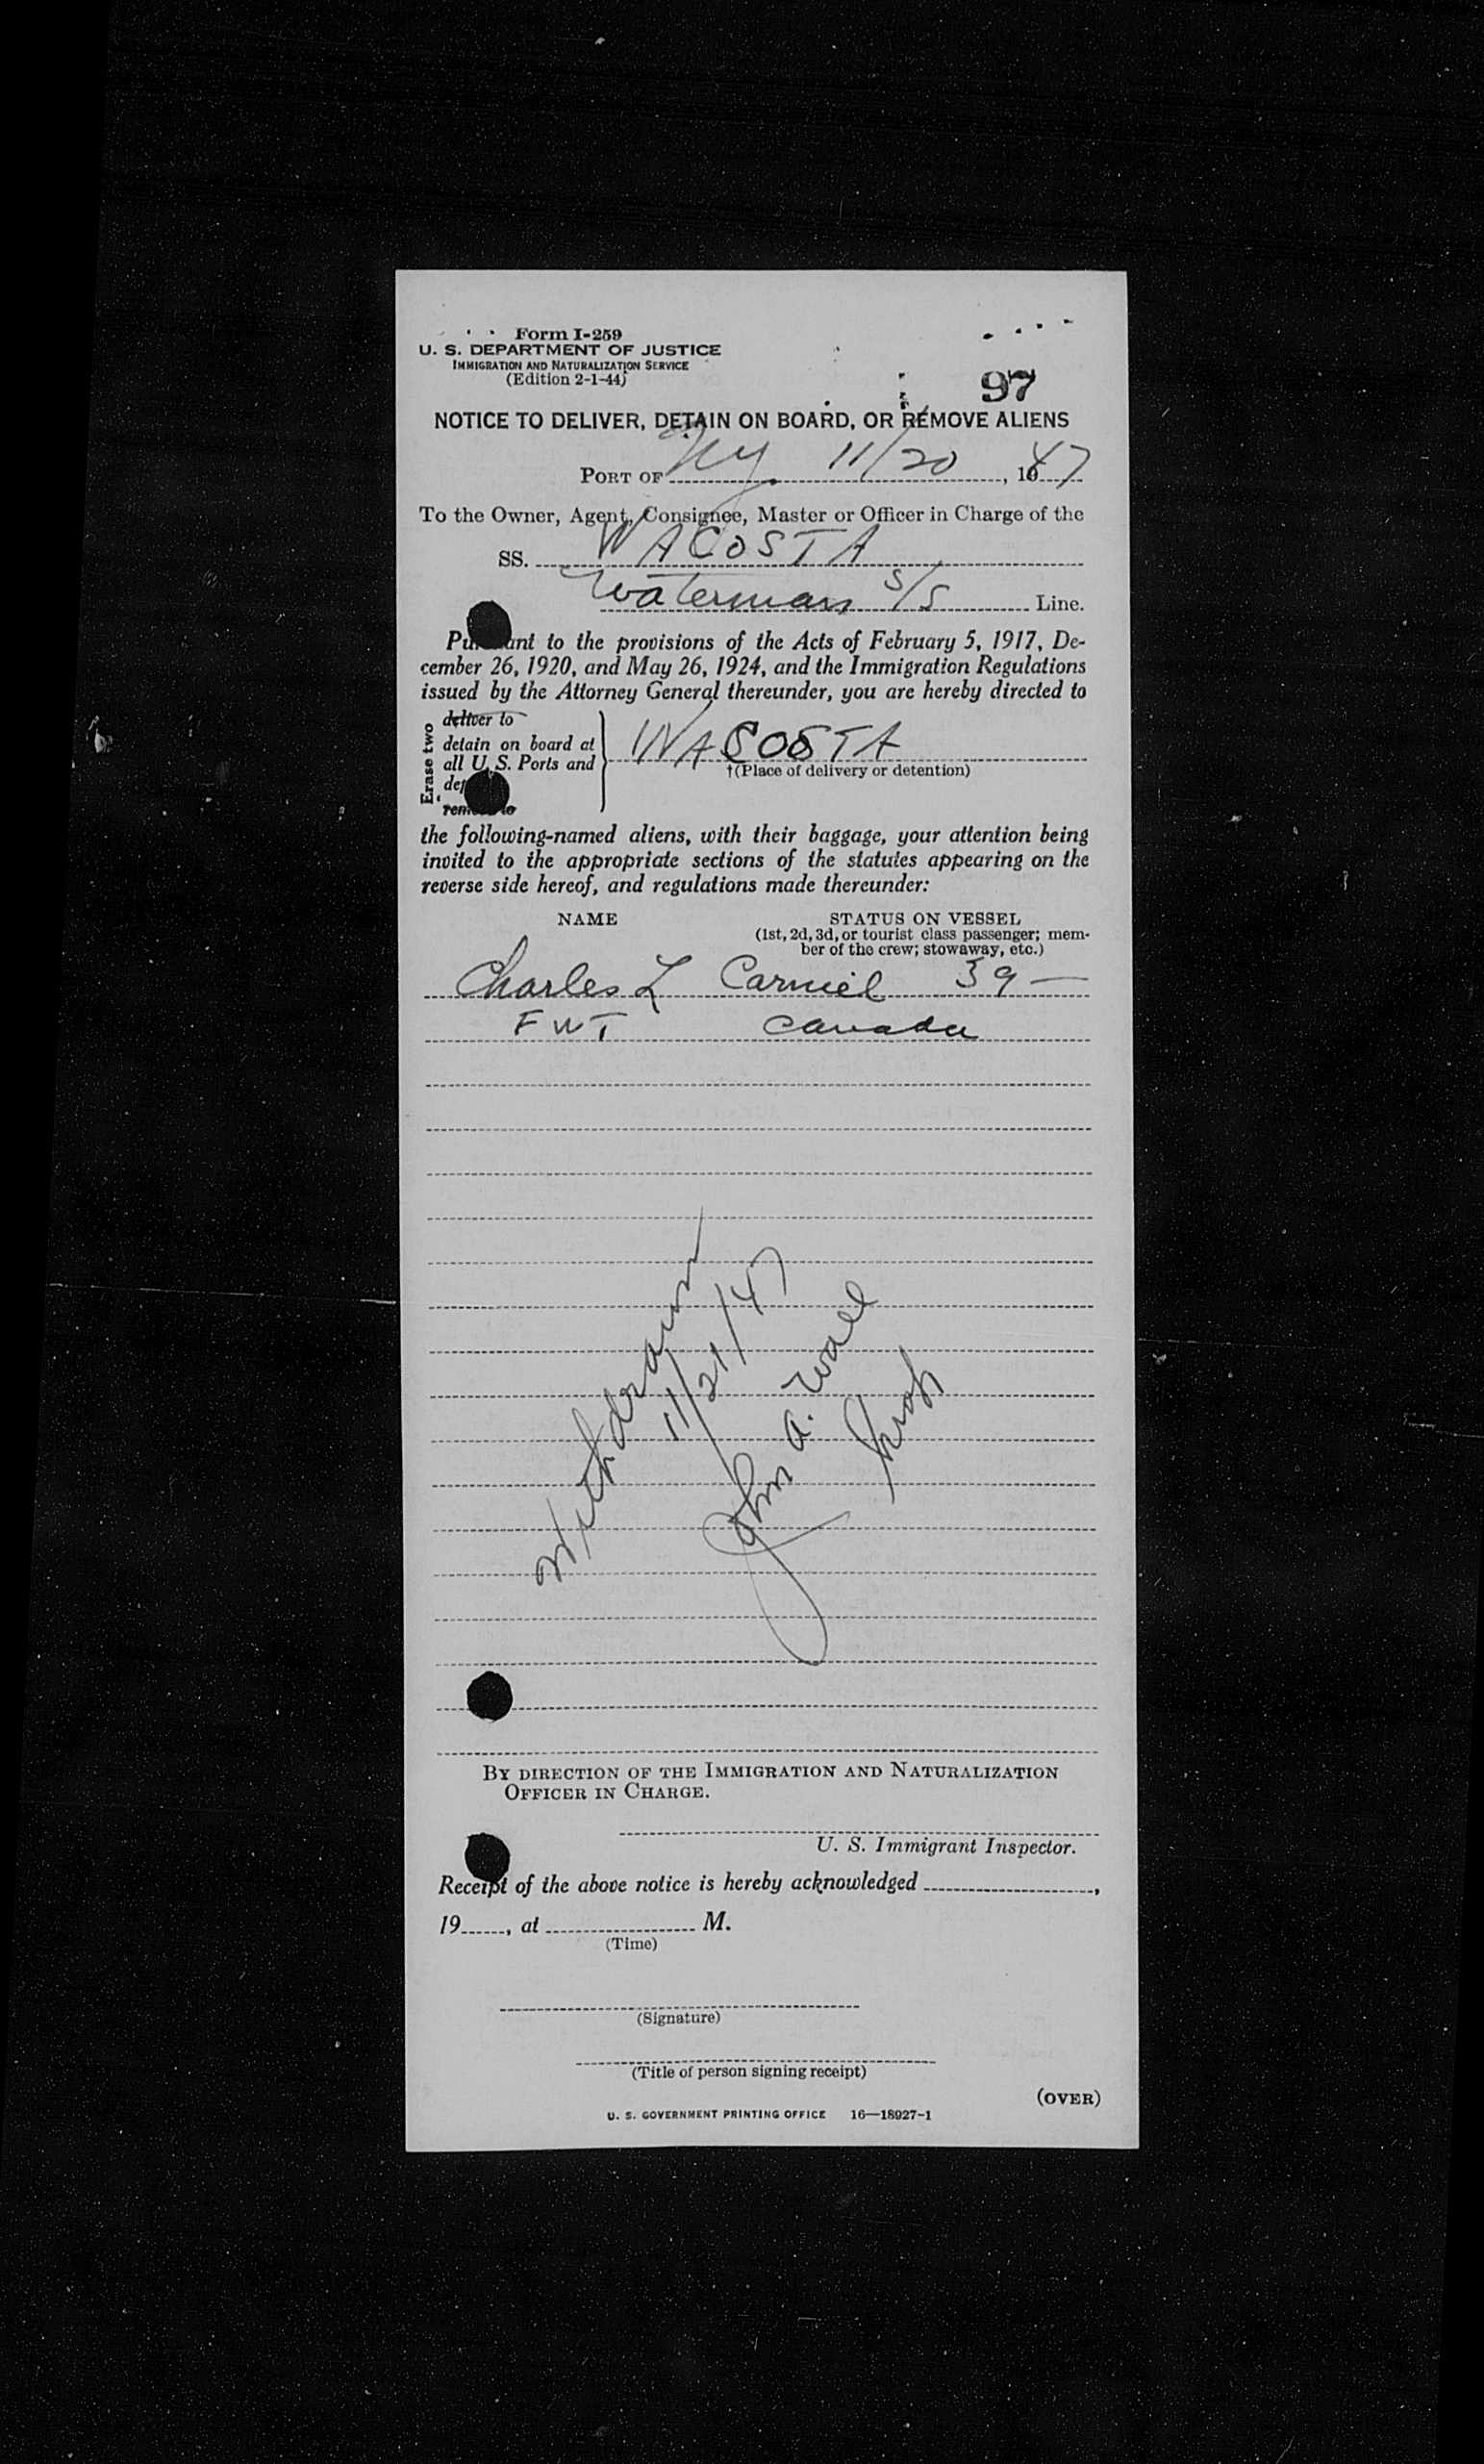 Form I-259
U. S. DEPARTMENT OF JUSTICE
IMMIGRATION AND NATURALIZATION SERVICE
(Edition 2-1-44)
97
NOTICE TO DELIVER, DETAIN ON BOARD, OR REMOVE ALIENS
PORT OF NY 11/20, 1947
To the Owner, Agent, Consignee, Master or Officer in Charge of the
SS. WACOSTA
Waterman S/S Line.
Pursuant to the provisions of the Acts of February 5, 1917, De-
cember 26, 1920, and May 26, 1924, and the Immigration Regulations
issued by the Attorney General thereunder, you are hereby directed to
Erase two
deliver to
detain on board at
all U. S. Ports and
remove to
WACOSTA
†(Place of delivery or detention)
the following-named aliens, with their baggage, your attention being
invited to the appropriate sections of the statutes appearing on the
reverse side hereof, and regulations made thereunder:
NAME STATUS ON VESSEL
(1st, 2d, 3d, or tourist class passenger; mem-
ber of the crew; stowaway, etc.)
Charles L Carmiel 39 —
FWT Canada
Withdrawn
11/21/47
John A. Wall
BY DIRECTION OF THE IMMIGRATION AND NATURALIZATION
OFFICER IN CHARGE.
U. S. Immigrant Inspector.
Receipt of the above notice is hereby acknowledged ,
19 , at M.
(Time)
(Signature)
(Title of person signing receipt)
(OVER)
U. S. GOVERNMENT PRINTING OFFICE 16—18927-1